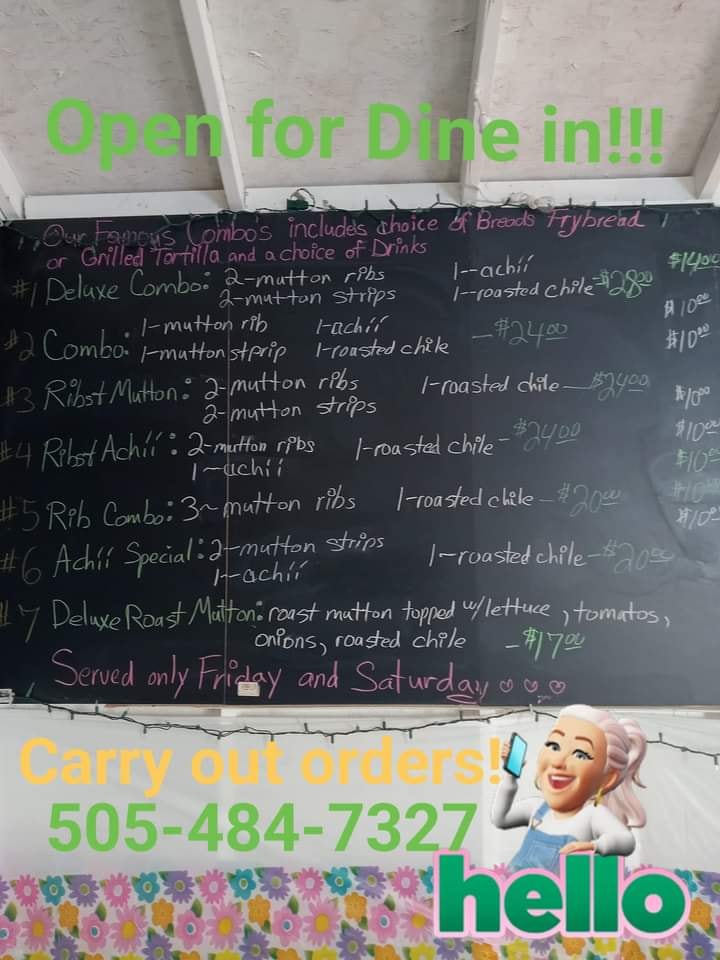 Open for Dine in!!!
Our Famous Combo's includes choice of Breads Frybread
or Grilled Tortilla and a choice of Drinks
#1 Deluxe Combo: 2-mutton ribs 1-achíí
2-mutton strips 1-roasted chile -$28.00
#2 Combo: 1-mutton rib 1-achíí
1-mutton stprip 1-roasted chile -$24.00
#3 Ribst Mutton: 2-mutton ribs 1-roasted chile - $24.00
2-mutton strips
#4 Ribst Achíí: 2-mutton ribs 1-roasted chile - $24.00
1-achíí
#5 Rib Combo: 3-mutton ribs 1-roasted chile - $20.00
#6 Achíí Special: 2-mutton strips 1-roasted chile - $20.00
1-achíí
#7 Deluxe Roast Mutton: roast mutton topped w/lettuce, tomatos,
onions, roasted chile -$17.00
Served only Friday and Saturday
$14.00
$10.00
$10.00
$10.00
$10.00
$10.00
$10.00
$10.00
Carry out orders!
505-484-7327
hello